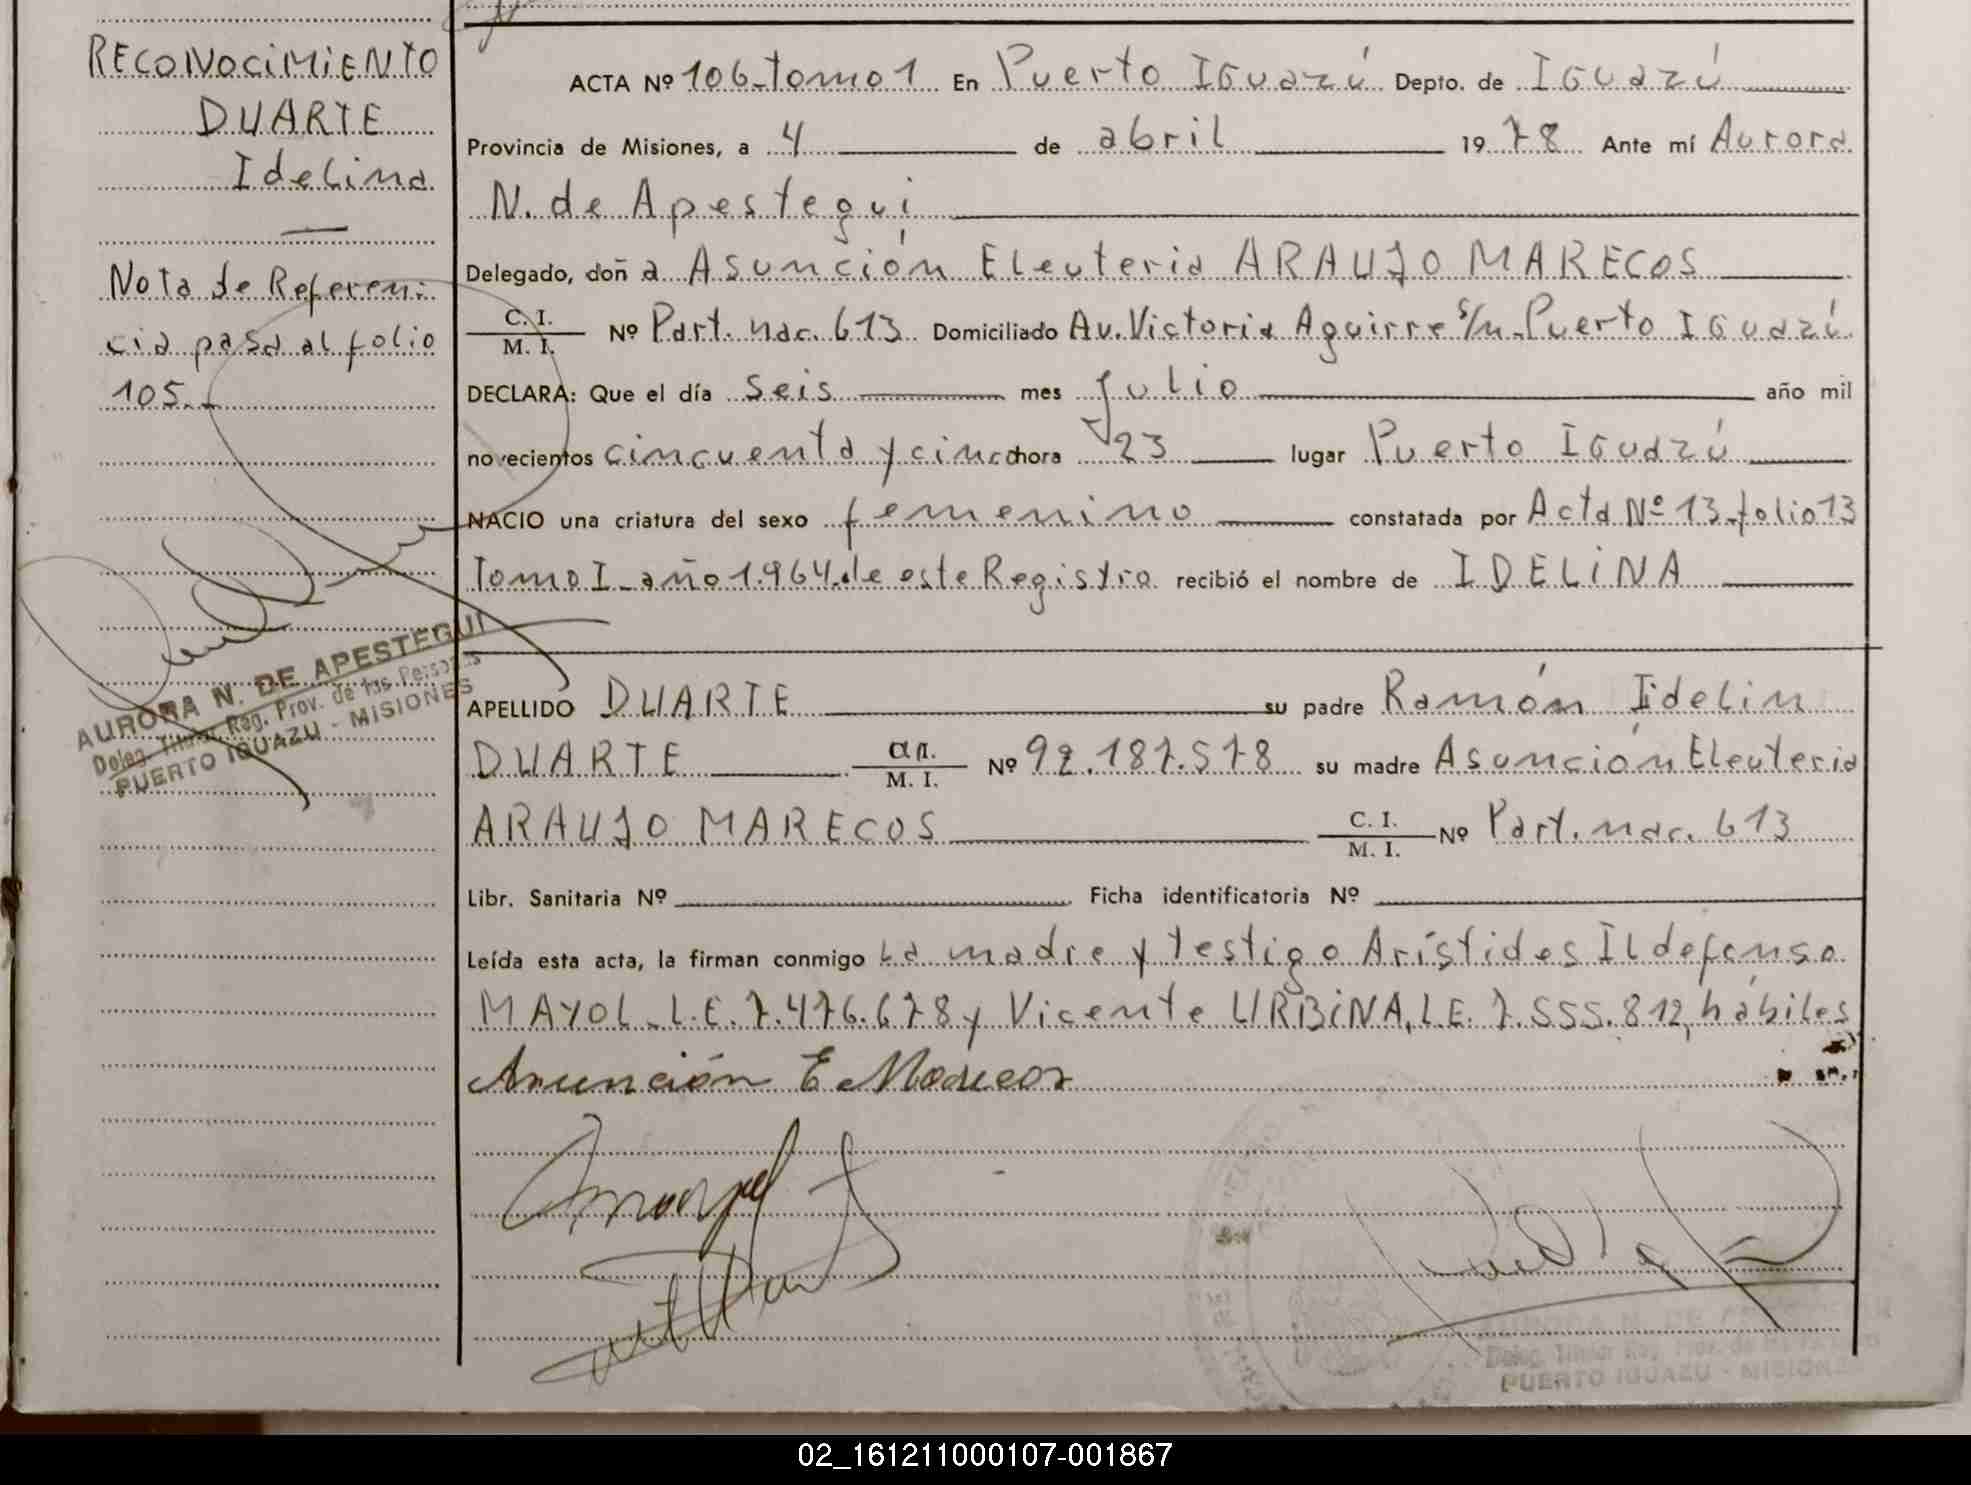 RECONOCIMIENTO
DUARTE
Idelina
Nota de Referen-
cia pasa al folio
105.-
AURORA N. DE APESTEGUI
Deleg. Titular Reg. Prov. de las Personas
PUERTO IGUAZU - MISIONES
ACTA Nº 106-Tomo 1 En Puerto Iguazú Depto. de Iguazú
Provincia de Misiones, a 4 de abril 19 78 Ante mí Aurora
N. de Apestegui
Delegado, doñ a Asunción Eleuteria ARAUJO MARECOS
C. I.
M. I.
Nº Part. nac. 613 Domiciliado Av. Victoria Aguirre s/n-Puerto Iguazú
DECLARA: Que el día seis mes julio año mil
novecientos cincuenta y cinco hora 23 lugar Puerto Iguazú
NACIO una criatura del sexo femenino constatada por Acta Nº 13-folio 13
Tomo I-año 1.964.de este Registro recibió el nombre de IDELINA
APELLIDO DUARTE su padre Ramón Idelin
DUARTE M. I. Nº 92.187.578 su madre Asunción Eleuteria
ARAUJO MARECOS C. I.
M. I.
Nº Part. nac. 613
Libr. Sanitaria Nº Ficha identificatoria Nº
Leída esta acta, la firman conmigo La madre y testigo Arístides Ildefonso
MAYOL-L.E.7.476.678 y Vicente URBINA, L.E. 7.555.812, hábiles
Asunción E Marecos
AURORA N. DE APESTEGUI
Deleg. Titular Reg. Prov. de las Personas
PUERTO IGUAZU - MISIONES
02_161211000107-001867